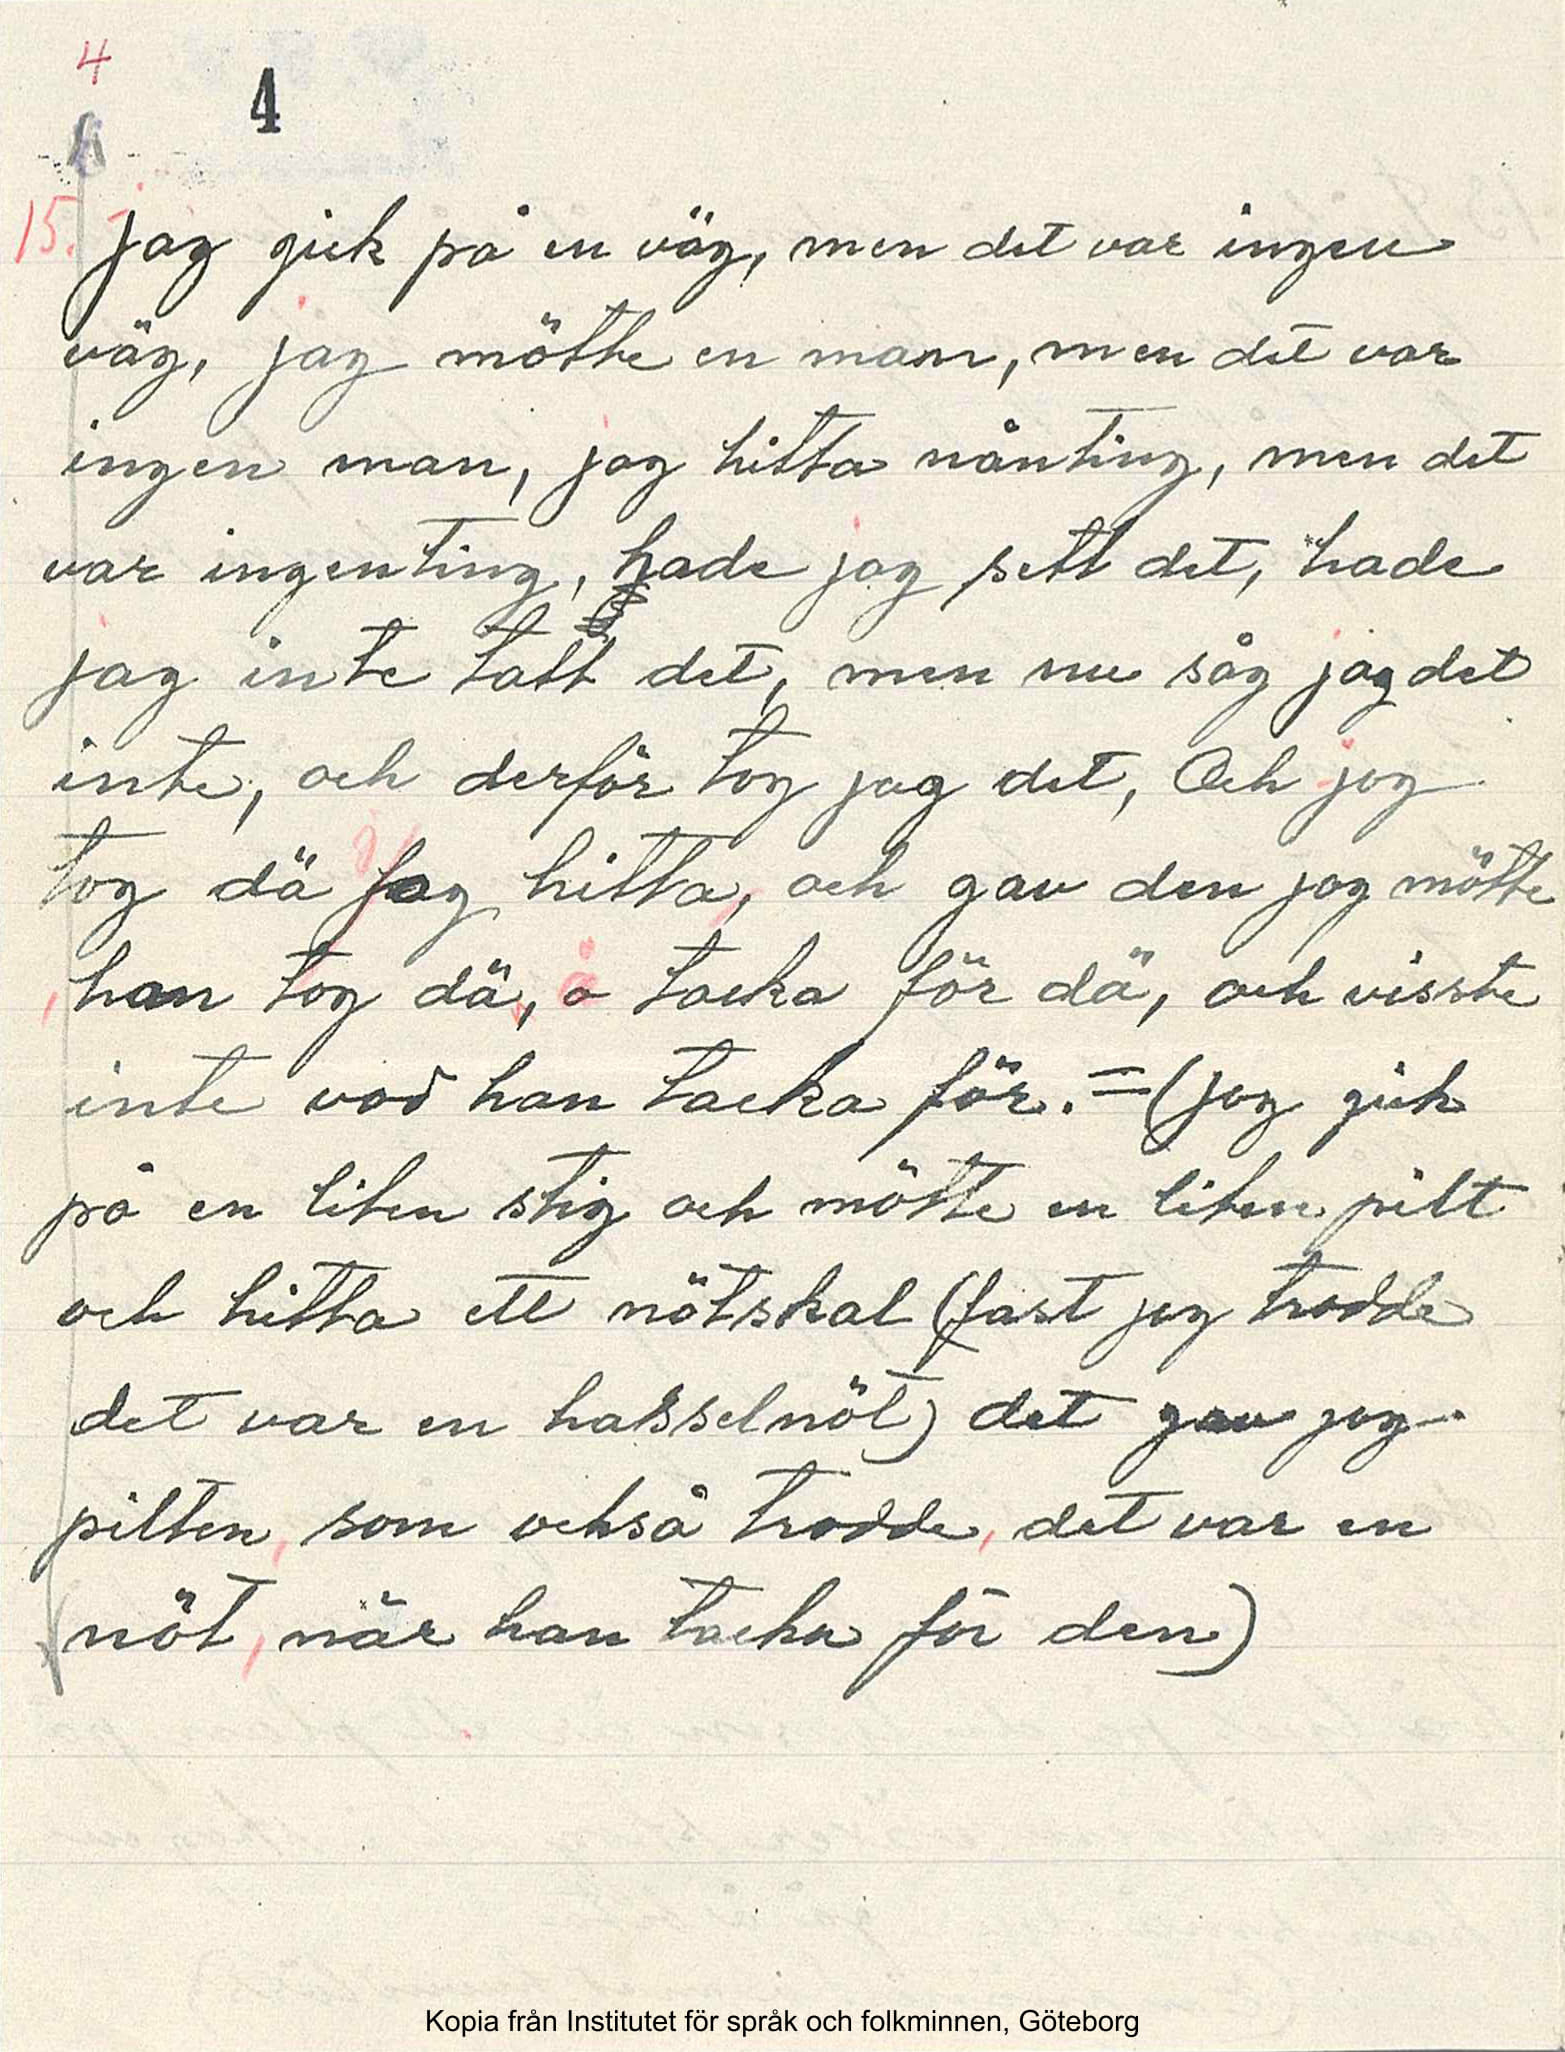 4
4
15. jag gick på en väg, men det var ingen
väg, jag mötte en man, men det var
ingen man, jag hitta nånting, men det
var ingenting, hade jag sett det, hade
jag inte tatt det, men nu såg jag det
inte, och derför tog jag det, Och jag
tog dä jag hitta, och gav den jag mötte
han tog dä, å tacka för dä, och visste
inte vad han tacka för. = (jag gick
på en liten stig och mötte en liten pilt
och hitta ett nötskal (fast jag trodde
det var en hasselnöt) det gav jag
pilten, som också trodde, det var en
nöt, när han tacka för den)
Kopia från Institutet för språk och folkminnen, Göteborg